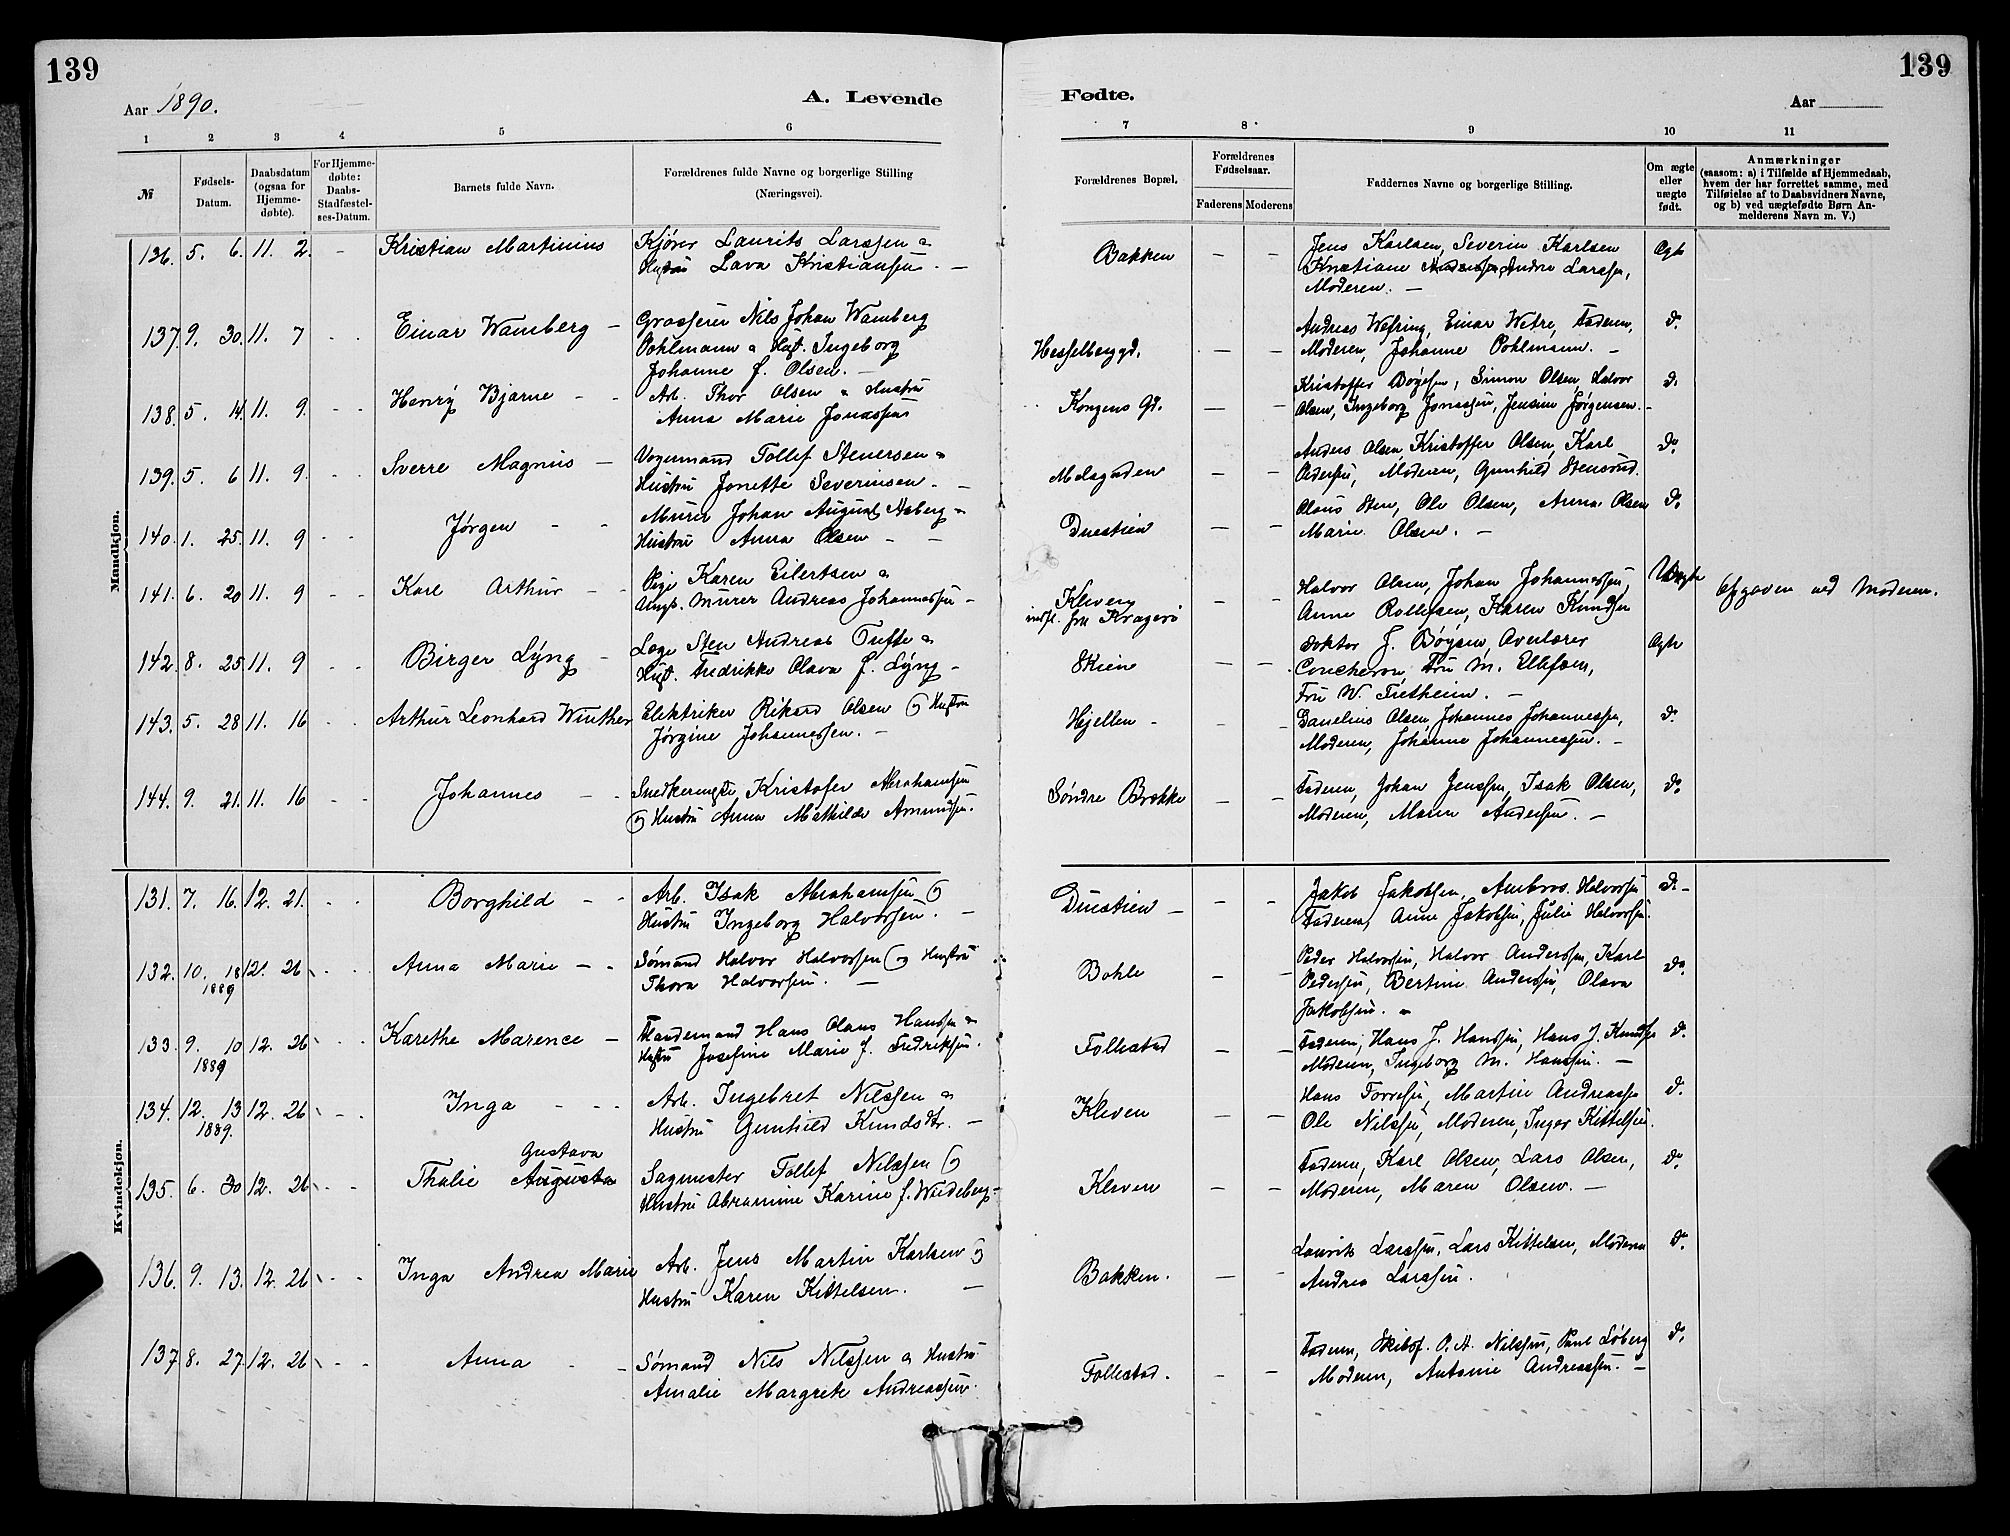 139
139
Aar 1890.
A. Levende
Fødte.
Aar
1 2 3 4 5 6 7 8 9 10 11
№
Fødsels-Datum.
Daabsdatum (ogsaa for Hjemmedøbte).
For Hjemmedøbte: Daabs-Stadfæstelses-Datum.
Barnets fulde Navn.
Forældrenes fulde Navne og borgerlige Stilling
(Næringsvei).
Forældrenes Bopæl.
Forældrenes Fødselsaar.
Faderens Moderens
Faddernes Navne og borgerlige Stilling.
Om ægte eller uægte født.
Anmærkninger
(saasom: a) i Tilfælde af Hjemmedaab,
hvem der har forrettet samme, med
Tilføielse af to Daabsvidners Navne,
og b) ved uægtefødte Børn Anmelderens Navn m. V.)
Mandkjøn.
136. 5. 6. 11. 2. - Kristian Martinius Kjører Laurits Larssen & Bakken - - Jens Karlsen, Severin Karlsen Ægte
Hustru Lava Kristiansen. - Kristiane Andrea Larssen,
Moderen. -
137. 9. 30. 11. 7 - - Einar Wamberg - Grosserer Nils Johan Wamberg Hesselberggd. - - Andreas Wefring, Einar Wetre, Faderen, do
Pohlmann & Hust. Ingeborg Moderen, Johanne Pohlmann. -
Johanne f. Olsen. -
138. 5. 14. 11. 9. - - Henry Bjarne - - Arb. Thor Olsen & Hustru Kongens Gd. - - Kristoffer Bøyesen, Simon Olsen, Halvor do
Anna Marie Jonassen Olsen, Ingeborg Jonassen, Jensine Jørgensen. -
139. 5. 6 11. 9. - - Sverre Magnus - Vogermand Tollef Stenersen & Melsgaden - - Anders Olsen, Kristoffer Olsen, Karl do
Hustru Jonette Severinsen. - Pedersen, Moderen, Gunhild Stensrud.
140. 1. 25. 11. 9 - - Jørgen - - Murer Johan August Aaberg & Duestien - - Olaus Sten, Ole Olsen, Anna Olsen do
Hustru Anna Olsen - - Marie Olsen. -
141. 6. 20 11. 9 - - Karl Arthur - - Pige Karen Eilertsen & Kleven - - Halvor Olsen, Johan Johannessen, Uægte Opgaven ved Moderen.
Ungk. Murer Andreas Johannessen - indfl. fra Kragerø Anne Rollefsen, Karen Knudsen
142. 8. 25 11. 9 - - Birger Lyng - Læge Sten Andreas Tuffe & Skien - - Doktor J. Bøysen, Overlærer Ægte
Hust. Fredrikke Olava f. Lyng - Coucheron, Fru M. Ellefsen,
Fru W. Fietheim. -
143. 5. 28 11. 16 - - Arthur Leonhard Winther Elektriker Rikard Olsen og Hustru Hjellen - - - Danelius Olsen, Johannes Johannessen, do
Jørgine Johannessen. - Moderen, Johanne Johannessen. -
144. 9. 21. 11. 16 - - Johannes - - Snedkermester Kristofer Abrahamsen Søndre Brække - - Faderen, Johan Jenssen, Isak Olsen, do
og Hustru Anna Mathilde Amundsen. Moderen, Maren Andersen. -
Kvindekjøn.
131. 7. 16. 12. 21. - - Borghild - - Arb. Isak Abrahamsen og Duestien - - - Jakob Jakobsen, Ambros. Halvorsen do -
Hustru Ingeborg Halvorsen. - Faderen, Anne Jakobsen, Julie Halvorsen.
132. 10. 18 12. 26 - - Anna Marie - - Sømand Halvor Halvorsen og Hustru Bohle - - Peder Halvorsen, Halvor Anderssen, Karl do
1889 Thora Halvorsen. - Pedersen, Bertine Andersen, Olava
Jakobsen. -
133. 9. 10 12. 26 - - Karethe Marence - Handemand Hans Olaus Hanssen & Follestad - - Faderen, Hans J. Hanssen, Hans J. Knudsen do
1889 Hustru Josefine Marie f. Fredriksen. Moderen, Ingeborg M. Hanssen. -
134. 12. 13 12. 26 - - Inga - - - Arb. Ingebret Nilssen & Kleven - - Hans Torressen, Martin Andreassen do
1889. Hustru Gunhild Knudsdtr. - Ole Nilssen, Moderen, Inger Kittelsen.
135. 6. 30 12. 26 - - Thalie Gustava Augusta Sagmester Tollef Nilssen og Kleven - - Faderen, Karl Olsen, Lars Olsen, do
Hustru Abramine Karine f. Wideberg - Moderen, Maren Olsen. -
136. 9. 13. 12. 26 - - Inga Andrea Marie Arb. Jens Martin Karlsen og Bakken. - - Laurits Larssen, Lars Kittelsen, Moderen do
Hustru Karen Kittelsen. - Andrea Larssen.
137 8. 27 12. 26 - - Anna - - Sømand Nils Nilssen & Hustru Follestad. - - Faderen, Skibsf. P. A. Nilssen, Paul Løberg do
Amalie Margrete Andreassen. Moderen, Antonie Andreassen. -